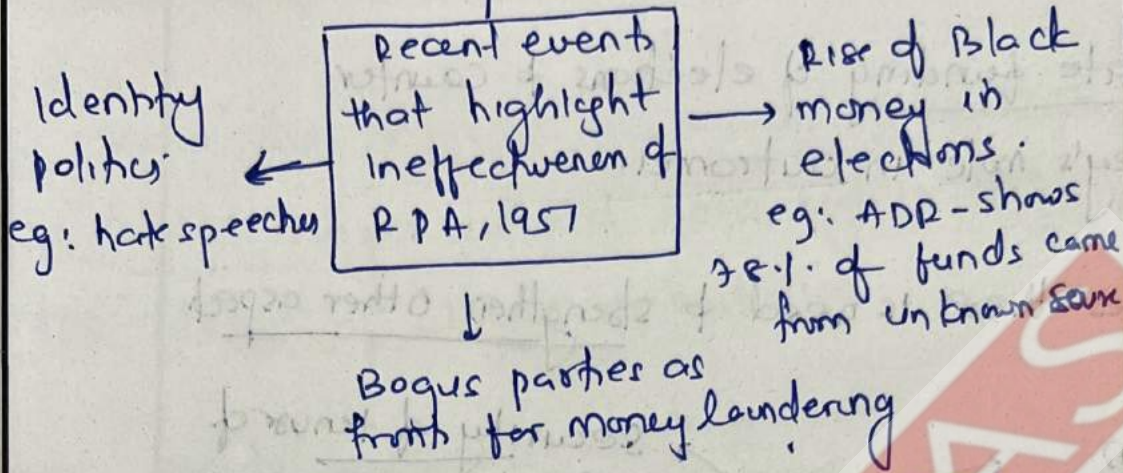 Recent events
that highlight
ineffectiveness of
RPA, 1957
Identity
politics
eg: hate speeches
Rise of Black
money in
elections.
eg: ADR - shows
78.1. of funds came
from unknown source
Bogus parties as
front for money laundering
AS